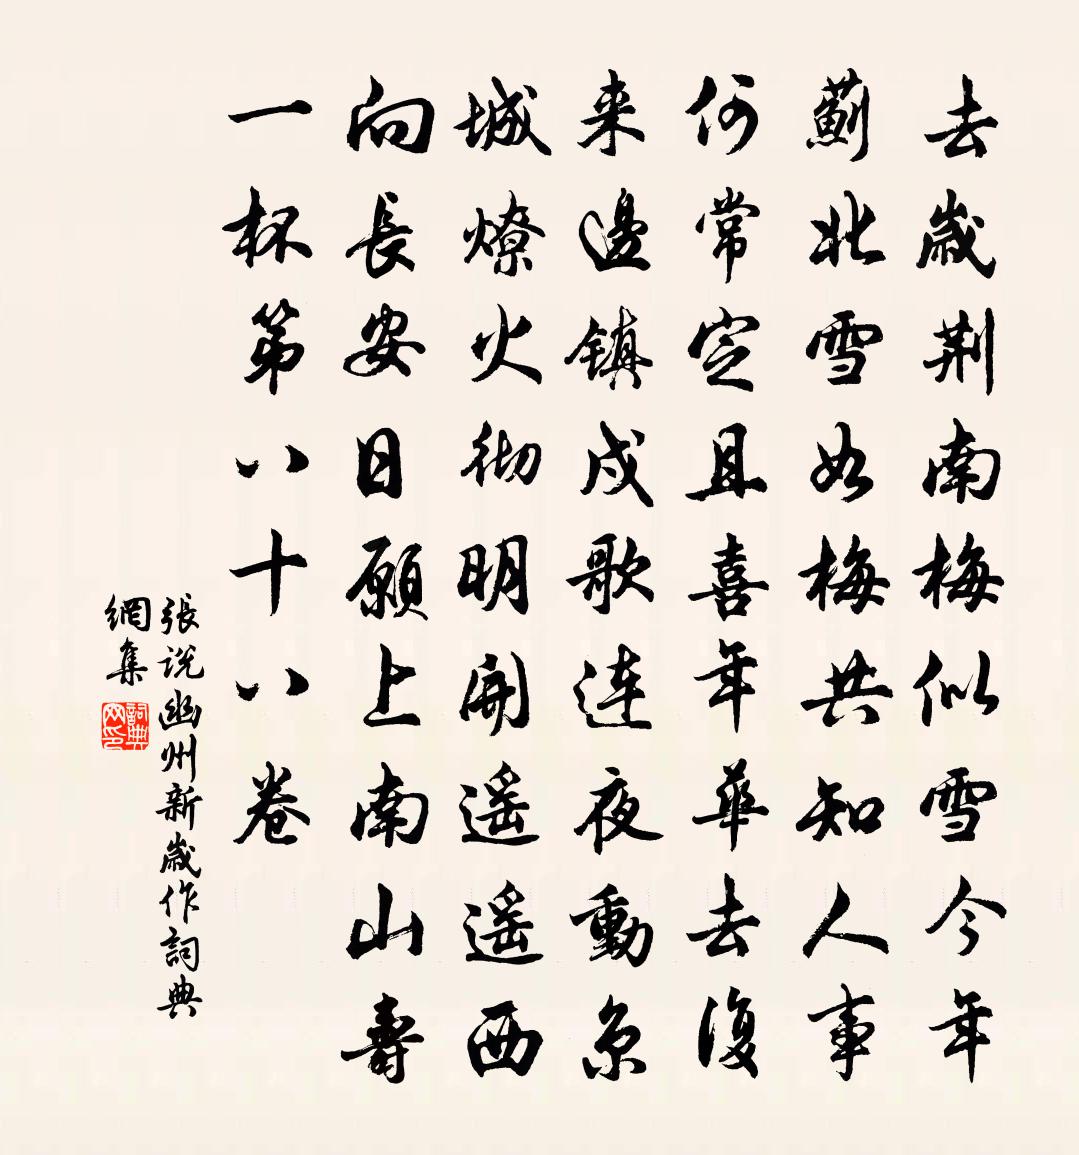 去歲荆南梅似雪今年
薊北雪如梅共知人事
何常定且喜年華去復
来邊鎮戍歌连夜動京
城燎火彻明開遥遥西
向長安日願上南山壽
一杯第八十八卷
張说幽州新歲作詞典
網集
詞典
网印